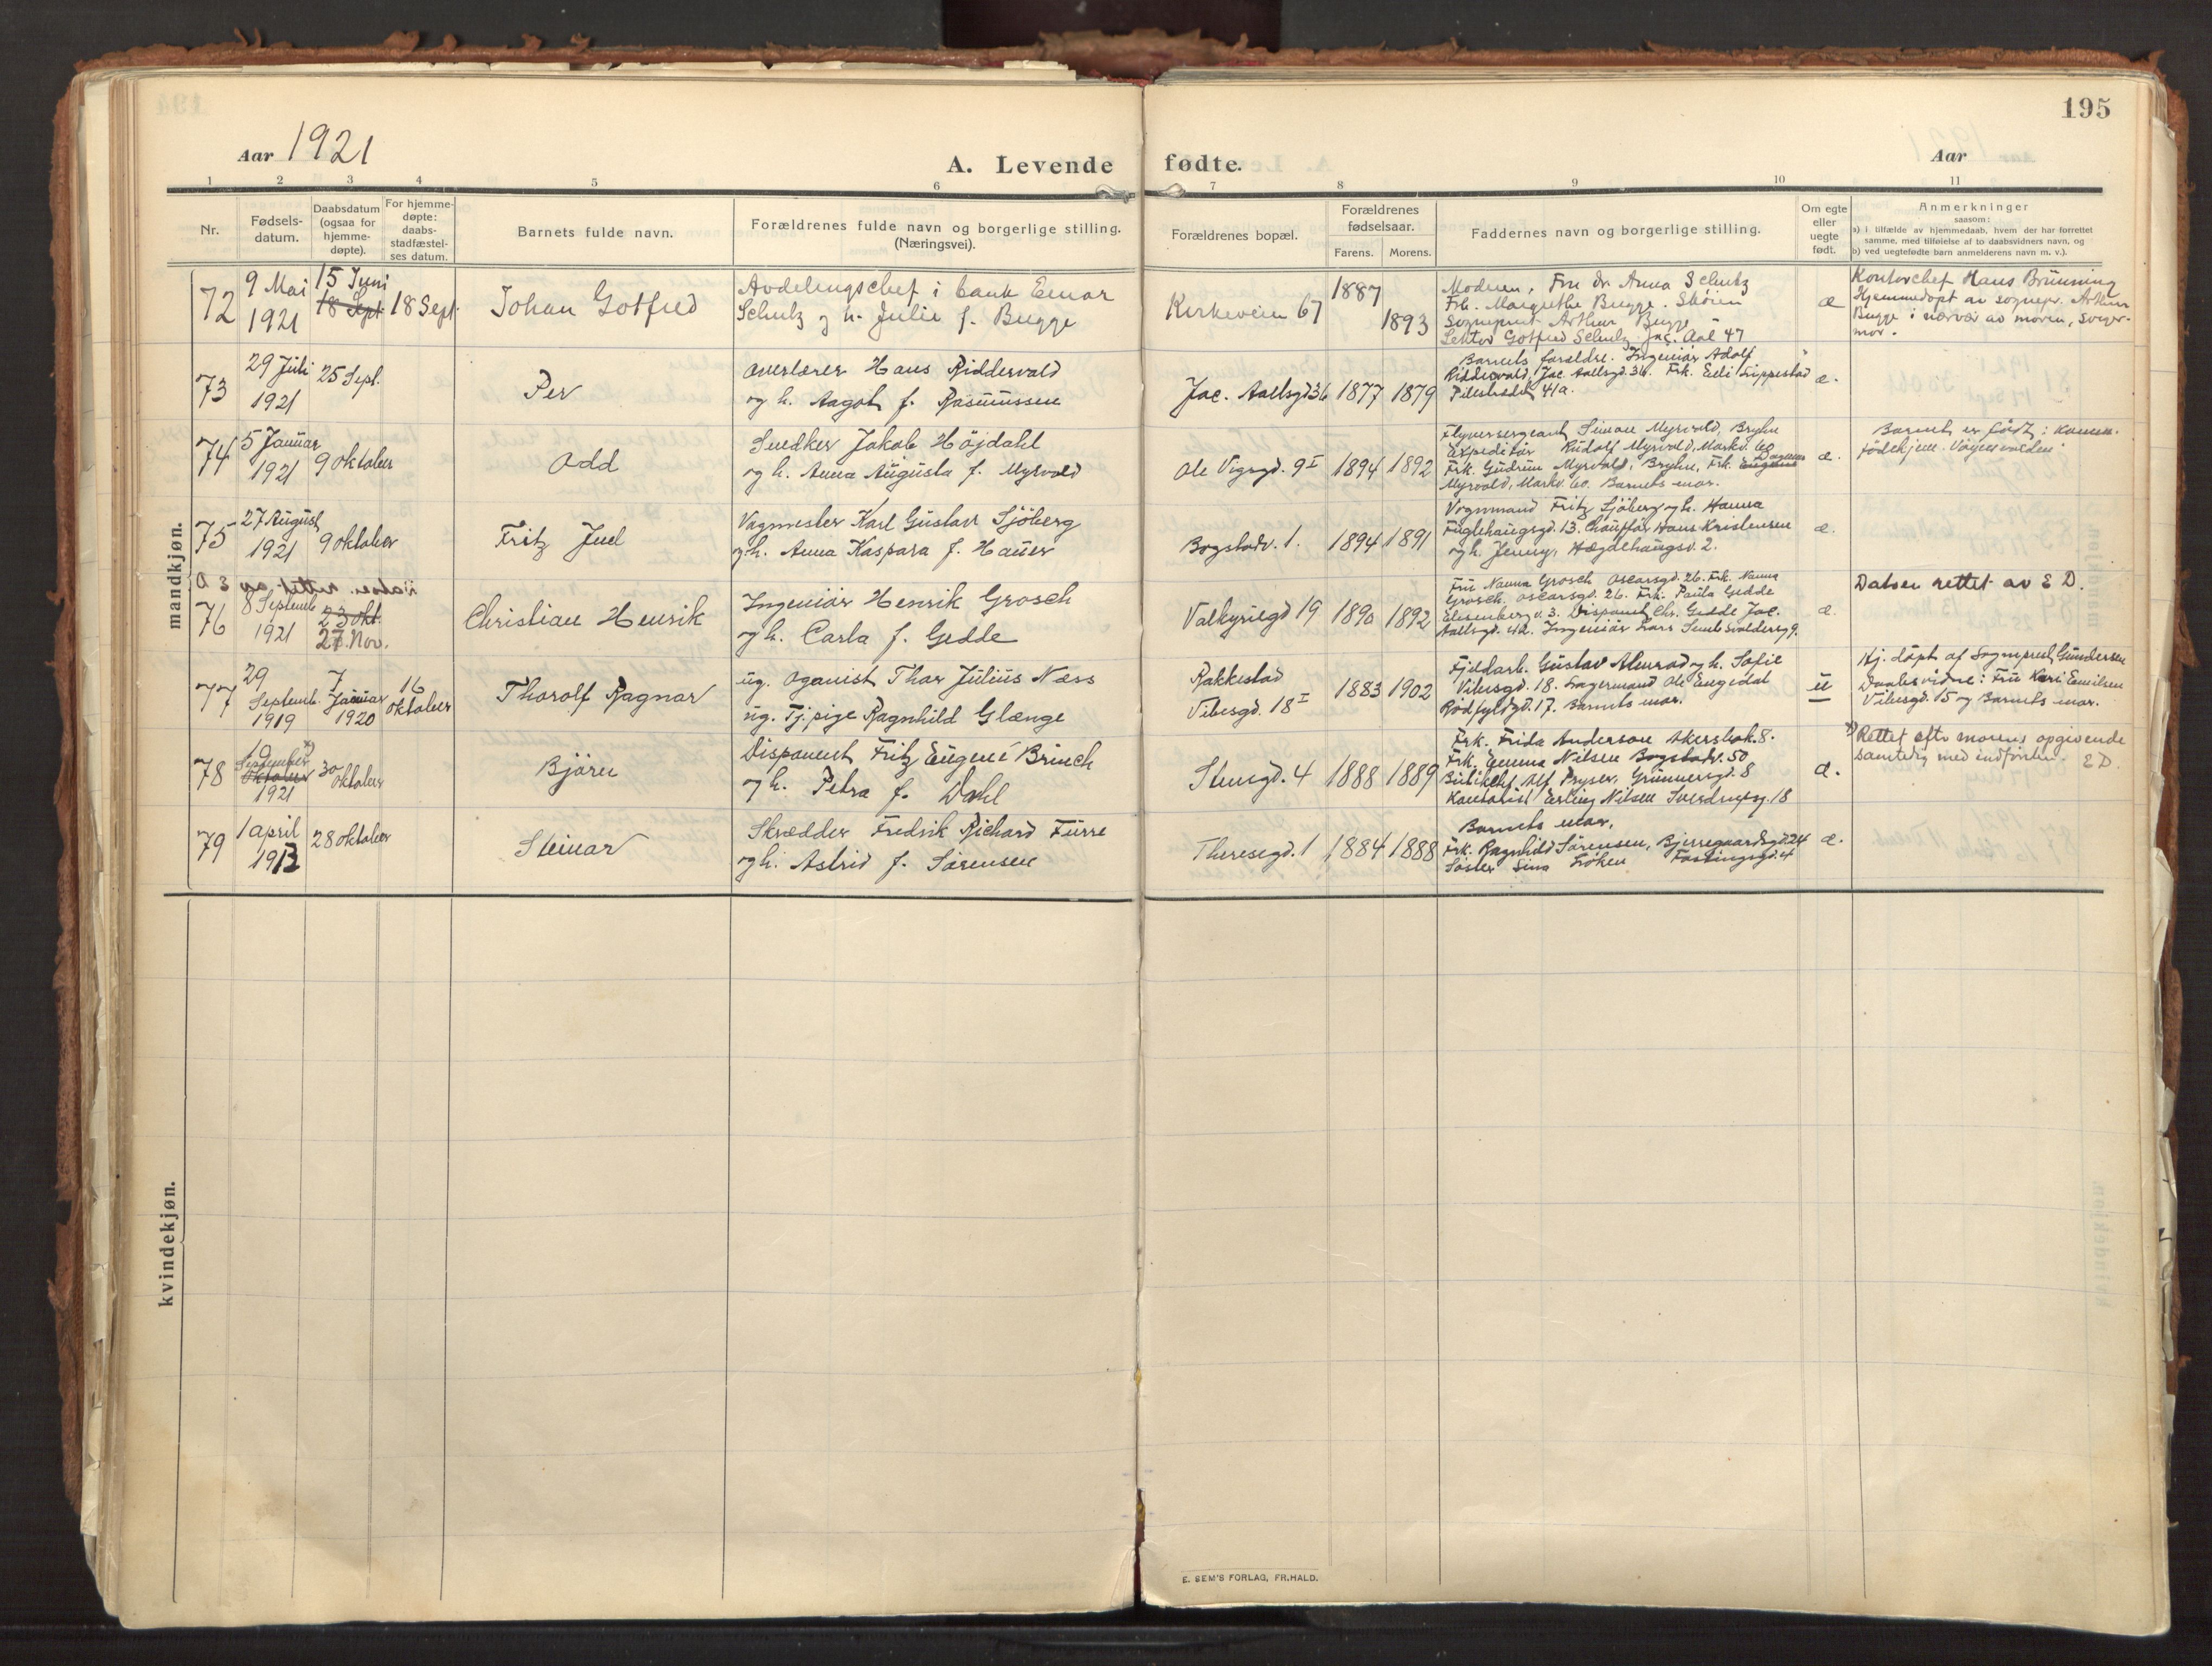 195
Aar 1921
A. Levende fødte.
Aar
1 2 3 4 5 6 7 8 9 10 11
Nr.
Fødsels-
datum.
Daabsdatum
(ogsaa for
hjemme-
døpte).
For hjemme-
døpte:
daabs-
stadfæstel-
ses datum.
Barnets fulde navn.
Forældrenes fulde navn og borgerlige stilling.
(Næringsvei).
Forældrenes bopæl.
Forældrenes
fødselsaar.
Farens. Morens.
Faddernes navn og borgerlige stilling.
Om egte
eller
uegte
født.
Anmerkninger
saasom:
a) i tilfælde av hjemmedaab, hvem der har forrettet
samme, med tilføielse af to daabsvidners navn, og
b) ved uegtefødte barn anmelderens navn m. v.).
mandkjøn.
72
9 Mai
1921
15 Juni
18 Sept
18 Sept.
Johan Gotfred
Avdelingschef i bank Einar
Schulz og h. Julie f. Bugge
Kirkeveien 67
1887
1893
Moderen, Fru Dr. Anna Schulz
Frk. Margrethe Bugge. Skøien
Sogneprest Arthur Bugge
Lektor Gotfred Schulz. Jac. Aal 47
æ
Kontorchef Hans Brünning
Hjemmedøpt av sognepr. Arthur
Bugge i nærvær av moren, sviger-
mor.
73
29 Juli
1921
25 Sept.
Per
Overlærer Hans Riddervold
og h. Aagot f. Rasmussen
Jac. Aallsgd 36
1877 1879
Barnets forældre. Ingeniör Adolf
Riddervold, Jac. Aallsgd. 36. Frk. Elli Frippestad
Pilestrædet 41a.
æ.
74
5 Januar
1921
9 Oktober
Odd
Snedker Jakob Höjdahl
og h. Anna Augusta f. Myrvold
Ole Vigsgd. 9 I
1894 1892
Flyversergeant Simon Myrvold, Bryhn
Expeditör Rudolf Myrvold, Markv. 60
Frk. Gudrun Myrvold, Bryhn, Frk. Dagmar
Myrvold, Markv. 60. Barnets mor.
æ.
Barnet er född i Komm.
Födehjem.
75
27 August
1921
9 Oktober
Fritz Juel
Vognmester Karl Gustav Sjöberg
og h. Anna Kaspara f. Hauer
Bogstadv. 1.
1894 1891
Vognmand Fritz Sjöberg og h. Hanna
Fuglehaugsgd. 13. Chaufför Hans Kristensen
og h. Jenny, Hægdehaugsv. 2.
æ.
76
8 Septemb
1921
23 Okt.
27. Nov.
Christian Henrik
Ingeniör Henrik Grosch
og h. Carla f. Gedde
Valkyriegd 19
1890 1892
Fru Nanna Grosch Oscarsgd. 26. Frk. Nanna
Grosch. Oscarsgd. 26. Frk. Paula Gedde
Eilisenberg v. 3. Disponent Chr. Gedde Jac.
Aallsgd. 42. Ingeniör Lars
æ.
Datoen rettet av E D.
77
29
Septemb.
1919
7
Januar
1920
16
Oktober
Thorolf Ragnar
ug. Oganist Thor Julius Næss
ug. Tj.pige Ragnhild Glænge
Rakkestad
Vibesgd. 18 I
1883 1902
Fjeldarb. Gustav Almrod og h. Sofie
Vibesgd. 18. Lagermand Ole Engedal
Rödfyldgd. 17. Barnets mor.
u
Hj. döpt af Sogneprest Gundersen
Daabsvidne: Fru Kari Emilsen
Vibesgd. 15 og Barnets mor.
78
10
September x)
Oktober
1921
30
Oktober
Björn
Disponent Fritz Eugené Brinch
og h. Petra f. Dahl
Stensgd. 4
1888 1889
Frk. Frida Anderson Akersbak. 8.
Frk. Emma Nilsen Bogstadv. 50
Alf Pryser, Grünnersgd. 8
Kontorist Erling Nilsen Sverdrupsg. 18
æ.
x) Rettet efter morens opgivende
samtidig med indførslen. E D.
79
1 April
1913
28 Oktober
Steinar
Skrædder Fredrik Richard Furre
og h. Astrid f. Sørensen
Theresegd. 1
1884 1888
Barnets mor.
Frk. Ragnhild Sörensen, Bjerregaardsgd. 24
Söster Sina Löken Fastingsgd. 4
æ.
kvindekjøn.
E. SEM'S FORLAG, FR.HALD.